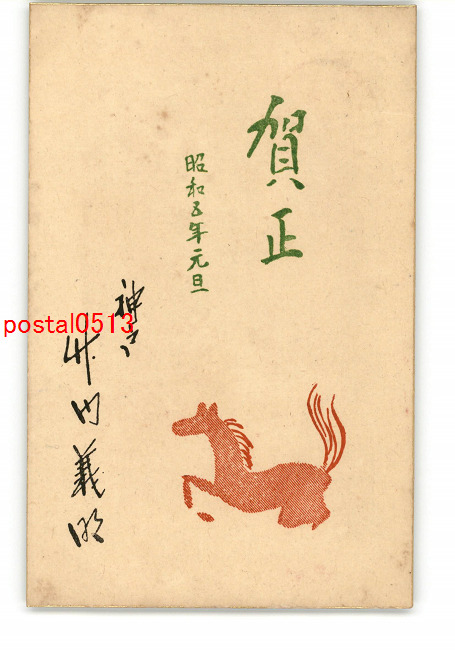 賀正
昭和5年元旦
神戸
竹内義明
postal0513